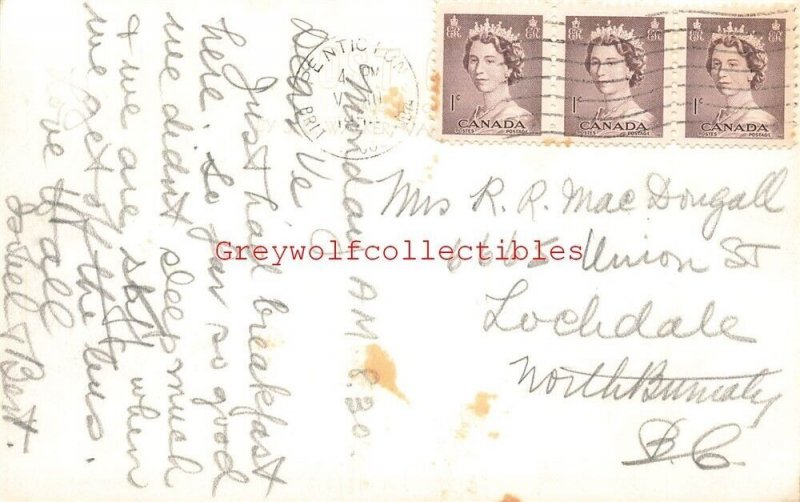 Monday AM 8.30.
Dear Ve
Just had breakfast
here. So far so good
we didnt sleep much
& we are stiff when
we get off the bus.
Love to all
& Bert.
PENTICTON
4 PM
BRIT
1¢ CANADA
POSTES POSTAGE
1¢ CANADA
POSTES POSTAGE
1¢ CANADA
POSTES POSTAGE
Mrs R. R. MacDougall
6665 Union St
Lochdale
North Burnaby
B.C.
Greywolfcollectibles